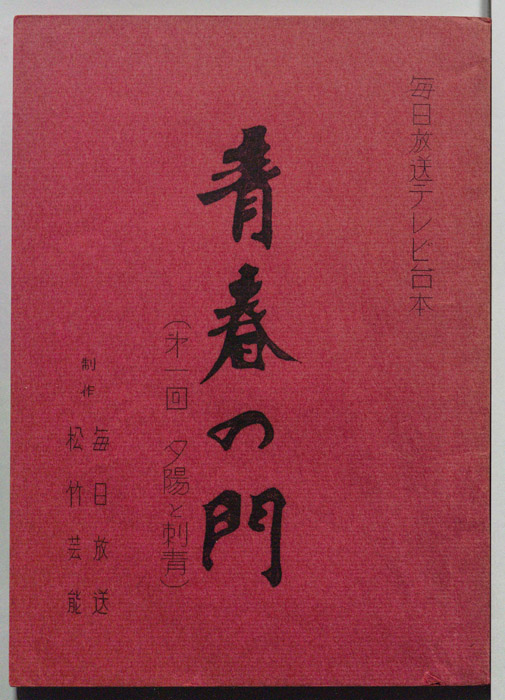 毎日放送テレビ台本
青春の門
(第一回 夕陽と刺青)
制作
毎日放送
松竹芸能